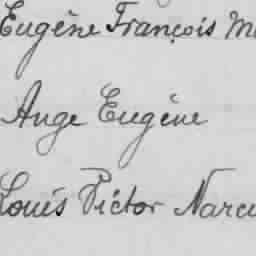 Eugène François M
Ange Eugène
Louis Victor Narci